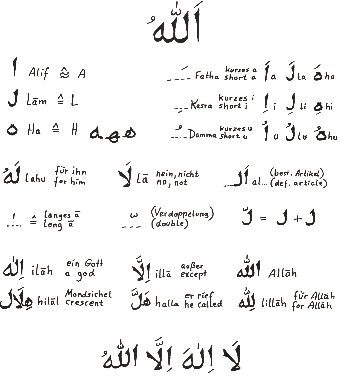 اَللّٰهُ
ا Alif ≙ A
kurzes a
ـَ Fatha short a اَ a لَ la هَ ha
ل Lām ≙ L
kurzes i
ـِ Kasra short i اِ i لِ li هِ hi
ه Ha ≙ H ههه
kurzes u
ـُ Damma short u اُ u لُ lu هُ hu
لَهُ lahu für ihn
for him
لَا lā nein, nicht
no, not
اَلـ al... (best. Artikel)
(def. article)
ا ≙ langes ā
long ā
ّ (Verdoppelung)
(double)
لّ = لْ + ل
اِلٰه ilāh ein Gott
a god
اِلَّا illā außer
except
اللّٰه Allāh
هِلَال hilāl Mondsichel
crescent
هَلَّ halla er rief
he called
لِلّٰه lillāh für Allāh
for Allāh
لَا اِلٰهَ اِلَّا اللّٰهُ